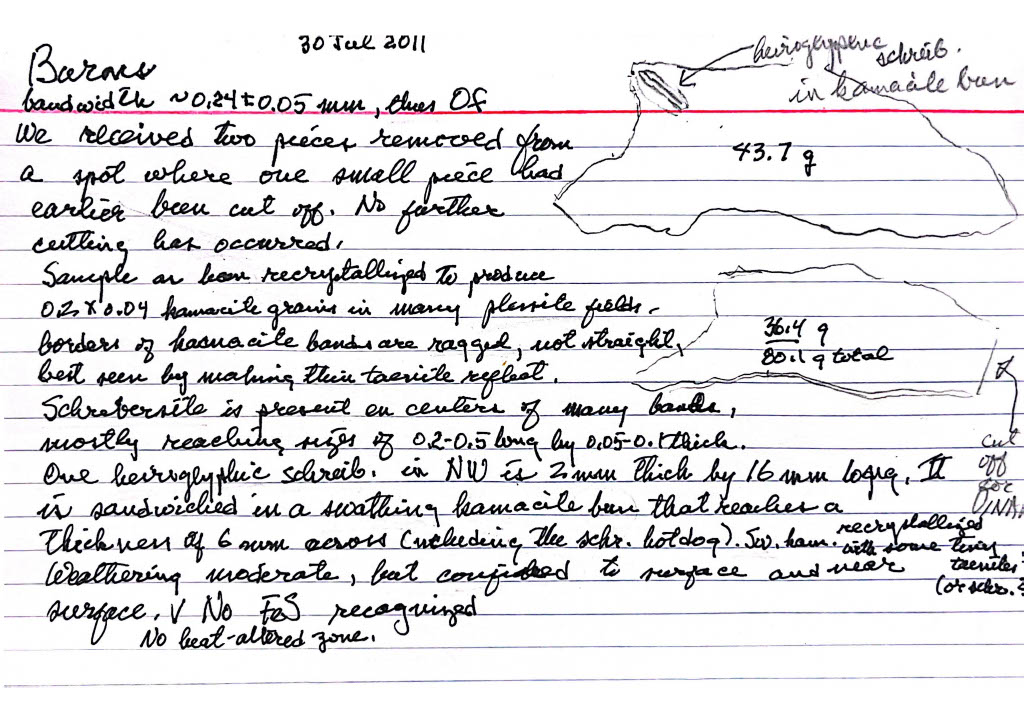 30 Jul 2011
Burns
bandwidth ~0.24±0.05 mm, thus Of
We received two pieces removed from
a spot where one small piece had
earlier been cut off. No further
cutting has occurred.
Sample as been recrystallized to produce
0.2 x 0.04 kamacite grains in many plessite fields.
borders of kamacite bands are ragged, not straight,
best seen by making thin taenite reflect.
Schrebersite is present en centers of many bands,
mostly reaching sizes of 0.2-0.5 long by 0.05-0.1 thick.
One heiroglyphic schreib. in NW is 2 mm thick by 16 mm long. It
is sandwiched in a swathing kamacite bun that reaches a
thickness of 6 mm across (including the schr. hotdog). Sw. kam. recrystallized
with some tiny
taenites
(or schr.?
Weathering moderate, but confined to surface and near
surface. No FeS recognized
No heat-altered zone.
heiroglyphic schreib.
in kamacite bun
43.7 g
36.4 g
80.1 g total
cut
off
for
INAA